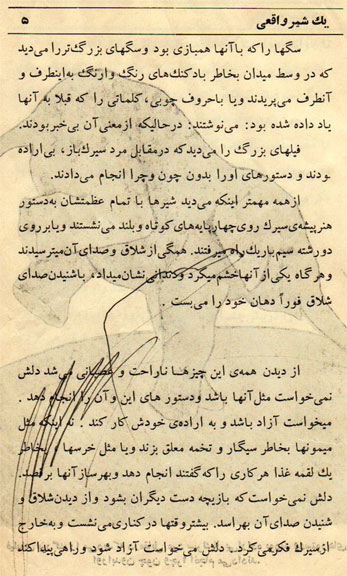 یک شیر واقعی ۵
سگها را که با آنها همبازی بود و سگهای بزرگ تر را می‌دید
که در وسط میدان بخاطر بادکنک‌های رنگ وارنگ به اینطرف و
آنطرف می‌پریدند و یا با حروف چوبی، کلماتی را که قبلا به آنها
یاد داده شده بود: می‌نوشتند: در حالیکه از معنی آن بی‌خبر بودند.
فیلهای بزرگ را می‌دید که در مقابل مرد سیرک باز، بی‌اراده
بودند و دستورهای او را بدون چون و چرا انجام می‌دادند.
از همه مهمتر اینکه می‌دید شیرها با تمام عظمتشان به دستور
هنرپیشه‌ی سیرک روی چهارپایه‌های کوتاه و بلند می‌نشستند و یا بر روی
دو رشته سیم باریک راه میرفتند. همگی از شلاق و صدای آن میترسیدند
و هر گاه یکی از آنها خشم میگرد و دندانی نشان میداد، با شنیدن صدای
شلاق فوراً دهان خود را می‌بست.
از دیدن همه‌ی این چیزها ناراحت و عصبانی می‌شد دلش
نمی‌خواست مثل آنها باشد و دستور های این و آن را انجام دهد.
میخواست آزاد باشد و به اراده‌ی خودش کار کند؛ نه اینکه مثل
میمونها بخاطر سیگار و تخمه معلق بزند و یا مثل خرسها بخاطر
یک لقمه غذا هر کاری را که گفتند انجام دهد و بهر ساز آنها برقصد.
دلش نمی‌خواست که بازیچه دست دیگران بشود و از دیدن شلاق و
شنیدن صدای آن بهراسد. بیشتر وقتها در کناری می‌نشست و به خارج
از سیرک فکر می‌کرد. دلش می‌خواست آزاد شود و راهی پیدا کند